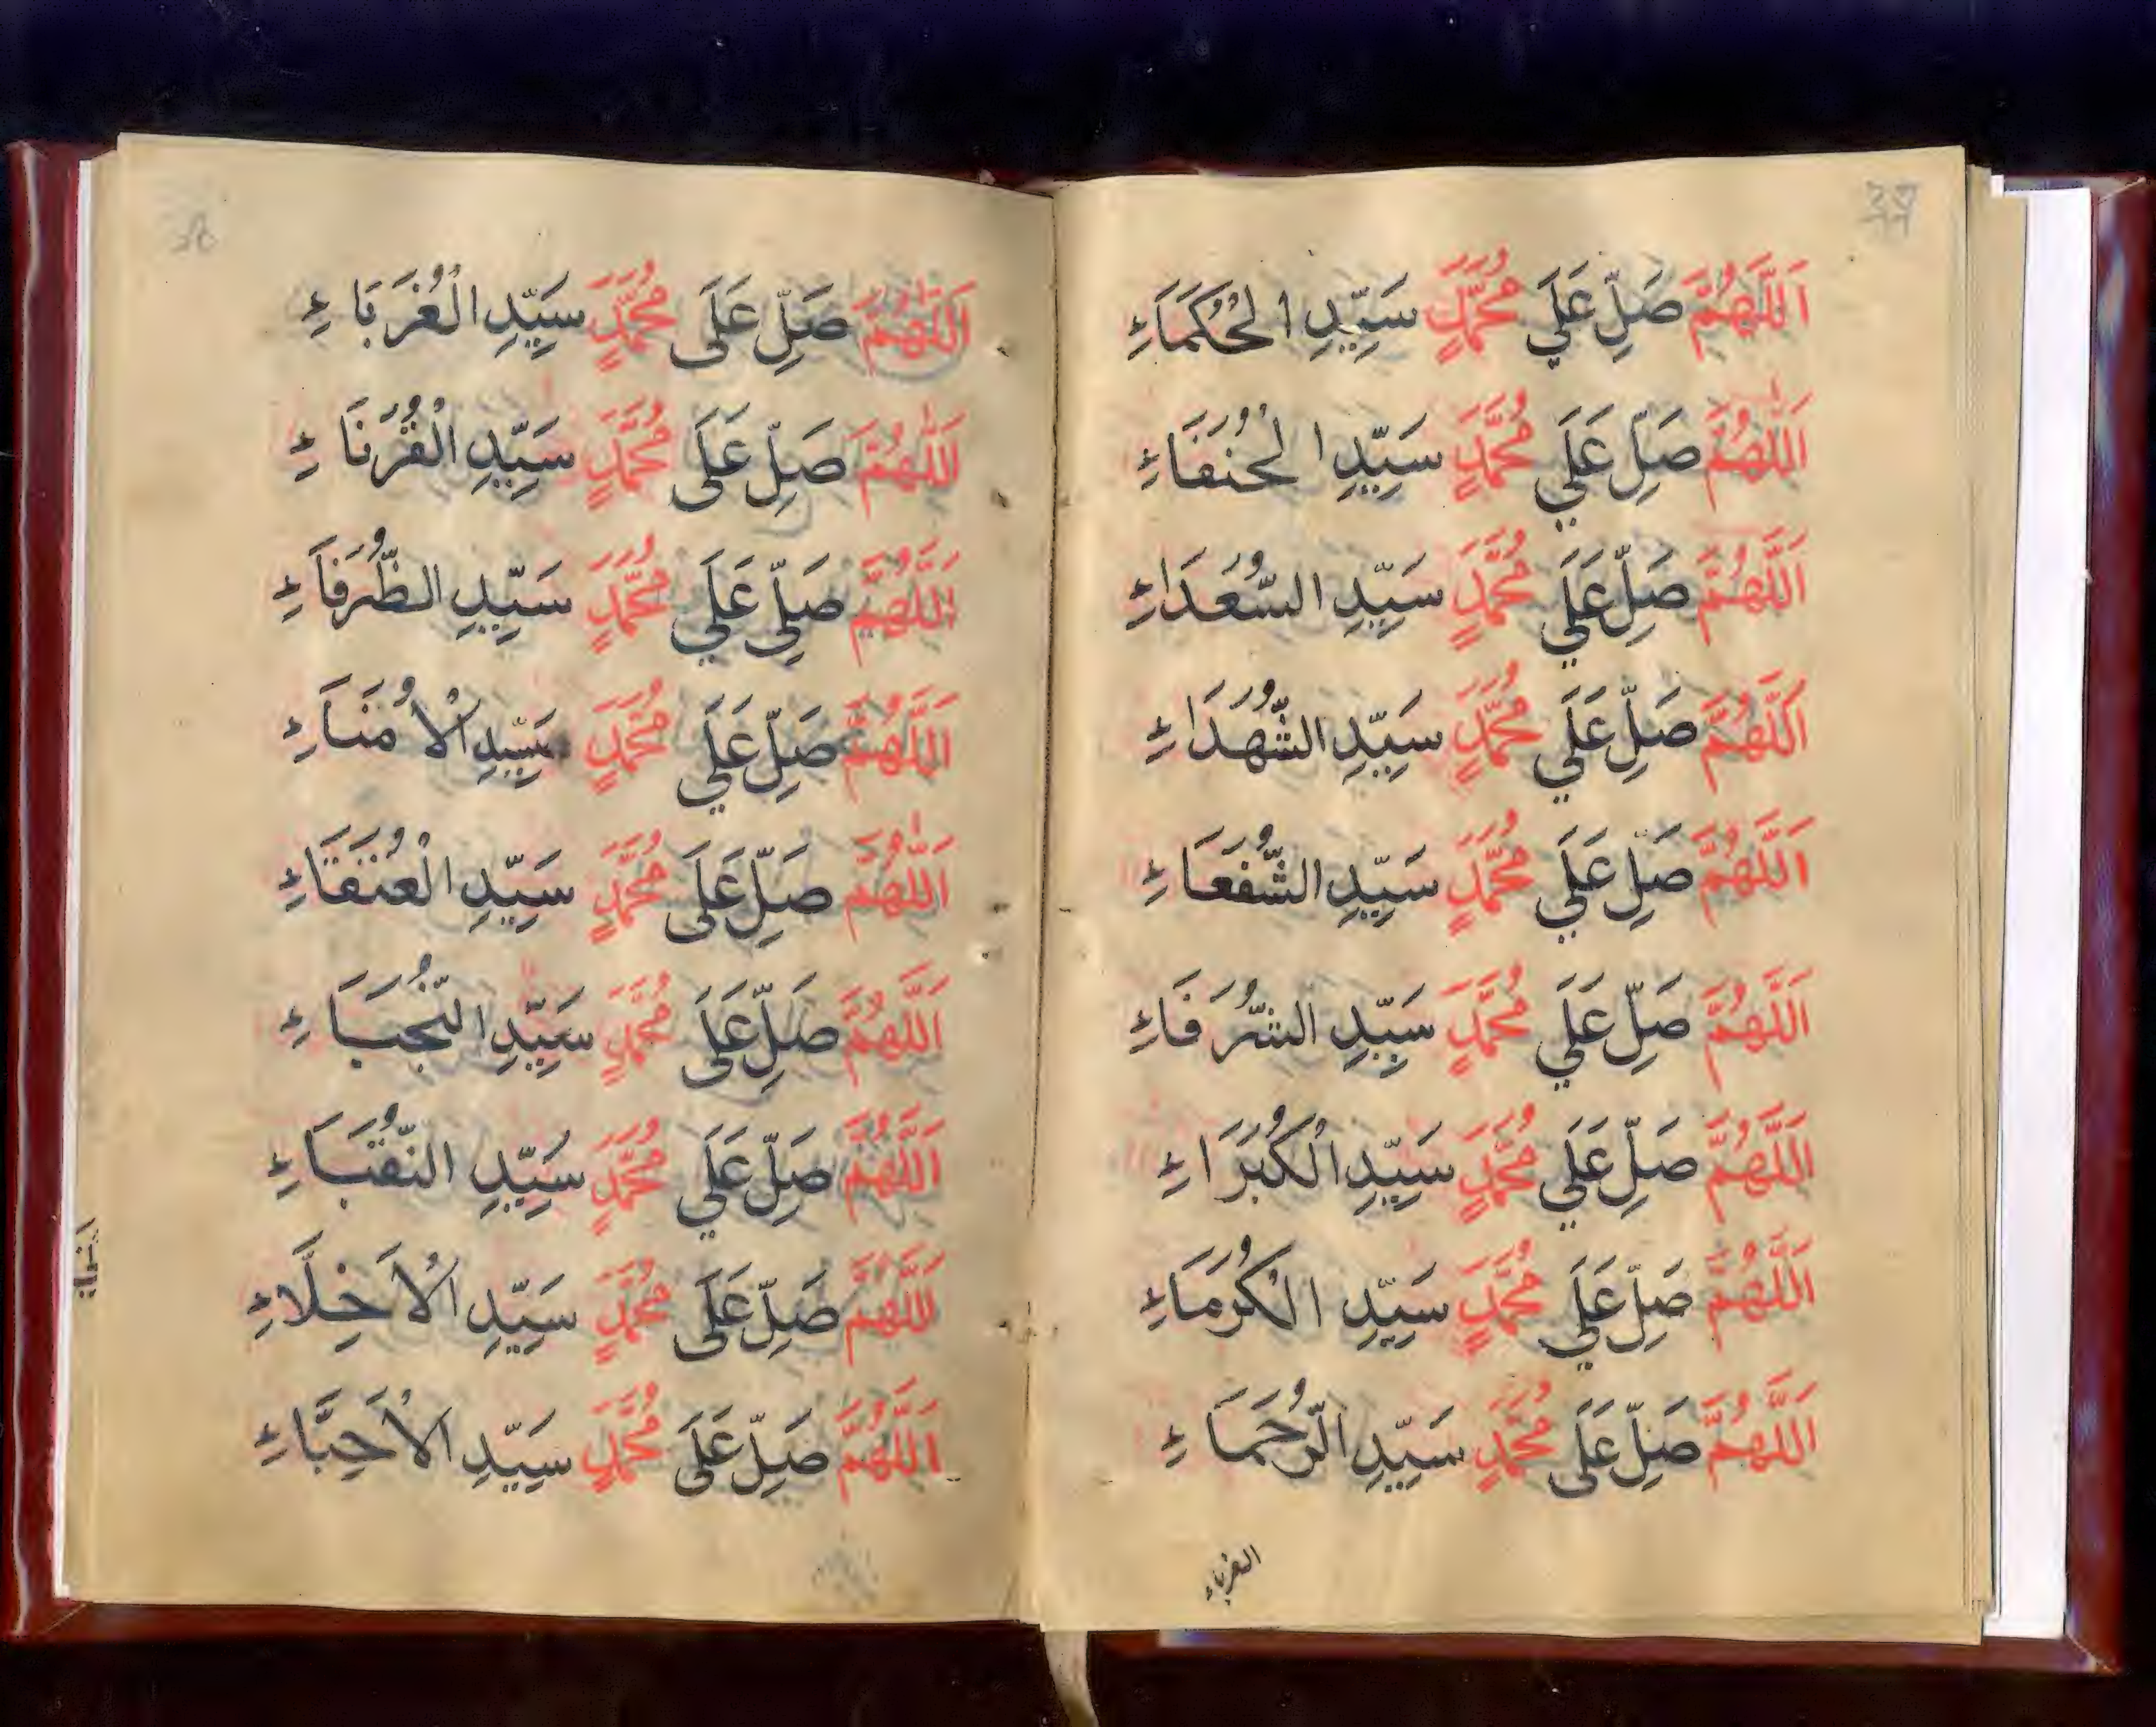 اَللَّهُمَّ صَلِّ عَلَي مُحَمَّدٍ سَيِّدِ الْحُكَمَاءِ
اَللّٰهُمَّ صَلِّ عَلَي مُحَمَّدٍ سَيِّدِ الْحُنَفَاءِ
اَللَّهُمَّ صَلِّ عَلَي مُحَمَّدٍ سَيِّدِ السُّعَدَاءِ
اَللَّهُمَّ صَلِّ عَلَي مُحَمَّدٍ سَيِّدِ الشُّهَدَاءِ
اَللَّهُمَّ صَلِّ عَلَي مُحَمَّدٍ سَيِّدِ الشُّفَعَاءِ
اَللَّهُمَّ صَلِّ عَلَي مُحَمَّدٍ سَيِّدِ الشُّرَفَاءِ
اَللَّهُمَّ صَلِّ عَلَي مُحَمَّدٍ سَيِّدِ الْكُبَرَاءِ
اَللَّهُمَّ صَلِّ عَلَي مُحَمَّدٍ سَيِّدِ الْكُرَمَاءِ
اَللَّهُمَّ صَلِّ عَلَى مُحَمَّدٍ سَيِّدِ الرُّحَمَاءِ
الغرباء
اَللّٰهُمَّ صَلِّ عَلَى مُحَمَّدٍ سَيِّدِ الْغُرَبَاءِ
اَللّٰهُمَّ صَلِّ عَلَى مُحَمَّدٍ سَيِّدِ الْقُرَنَاءِ
اَللَّهُمَّ صَلِّي عَلَي مُحَمَّدٍ سَيِّدِ الظُّرَفَاءِ
اَللَّهُمَّ صَلِّ عَلَي مُحَمَّدٍ سَيِّدِ الْاُمَنَاءِ
اَللّٰهُمَّ صَلِّ عَلَى مُحَمَّدٍ سَيِّدِ الْعُنَقَاءِ
اَللَّهُمَّ صَلِّ عَلَى مُحَمَّدٍ سَيِّدِ النُّجَبَاءِ
اَللَّهُمَّ صَلِّ عَلَي مُحَمَّدٍ سَيِّدِ النُّقَبَاءِ
اَللَّهُمَّ صَلِّ عَلَى مُحَمَّدٍ سَيِّدِ الْاَخِلَّاءِ
اَللَّهُمَّ صَلِّ عَلَى مُحَمَّدٍ سَيِّدِ الْاَحِبَّاءِ